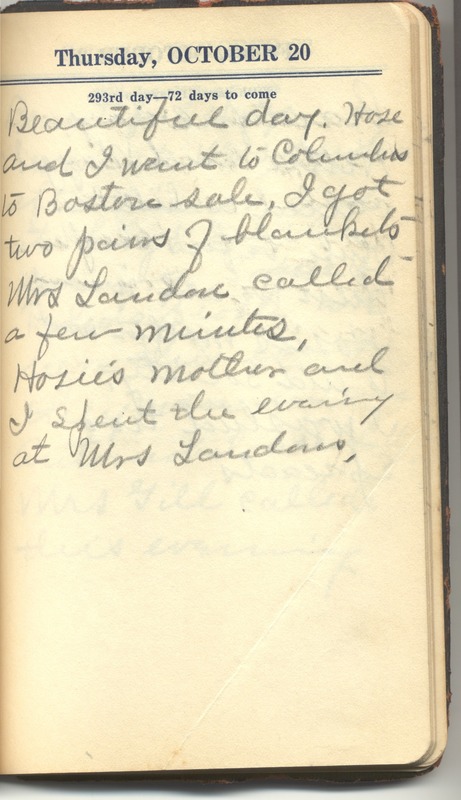 Thursday, OCTOBER 20
293rd day—72 days to come
Beautiful day. Hose
and I went to Columbus
to Boston sale. I got
two pairs of blankets
Mrs Landon called
a few minutes,
Hosie's mother and
I spent the evening
at Mrs Landons,
Mrs Gill called
this evening